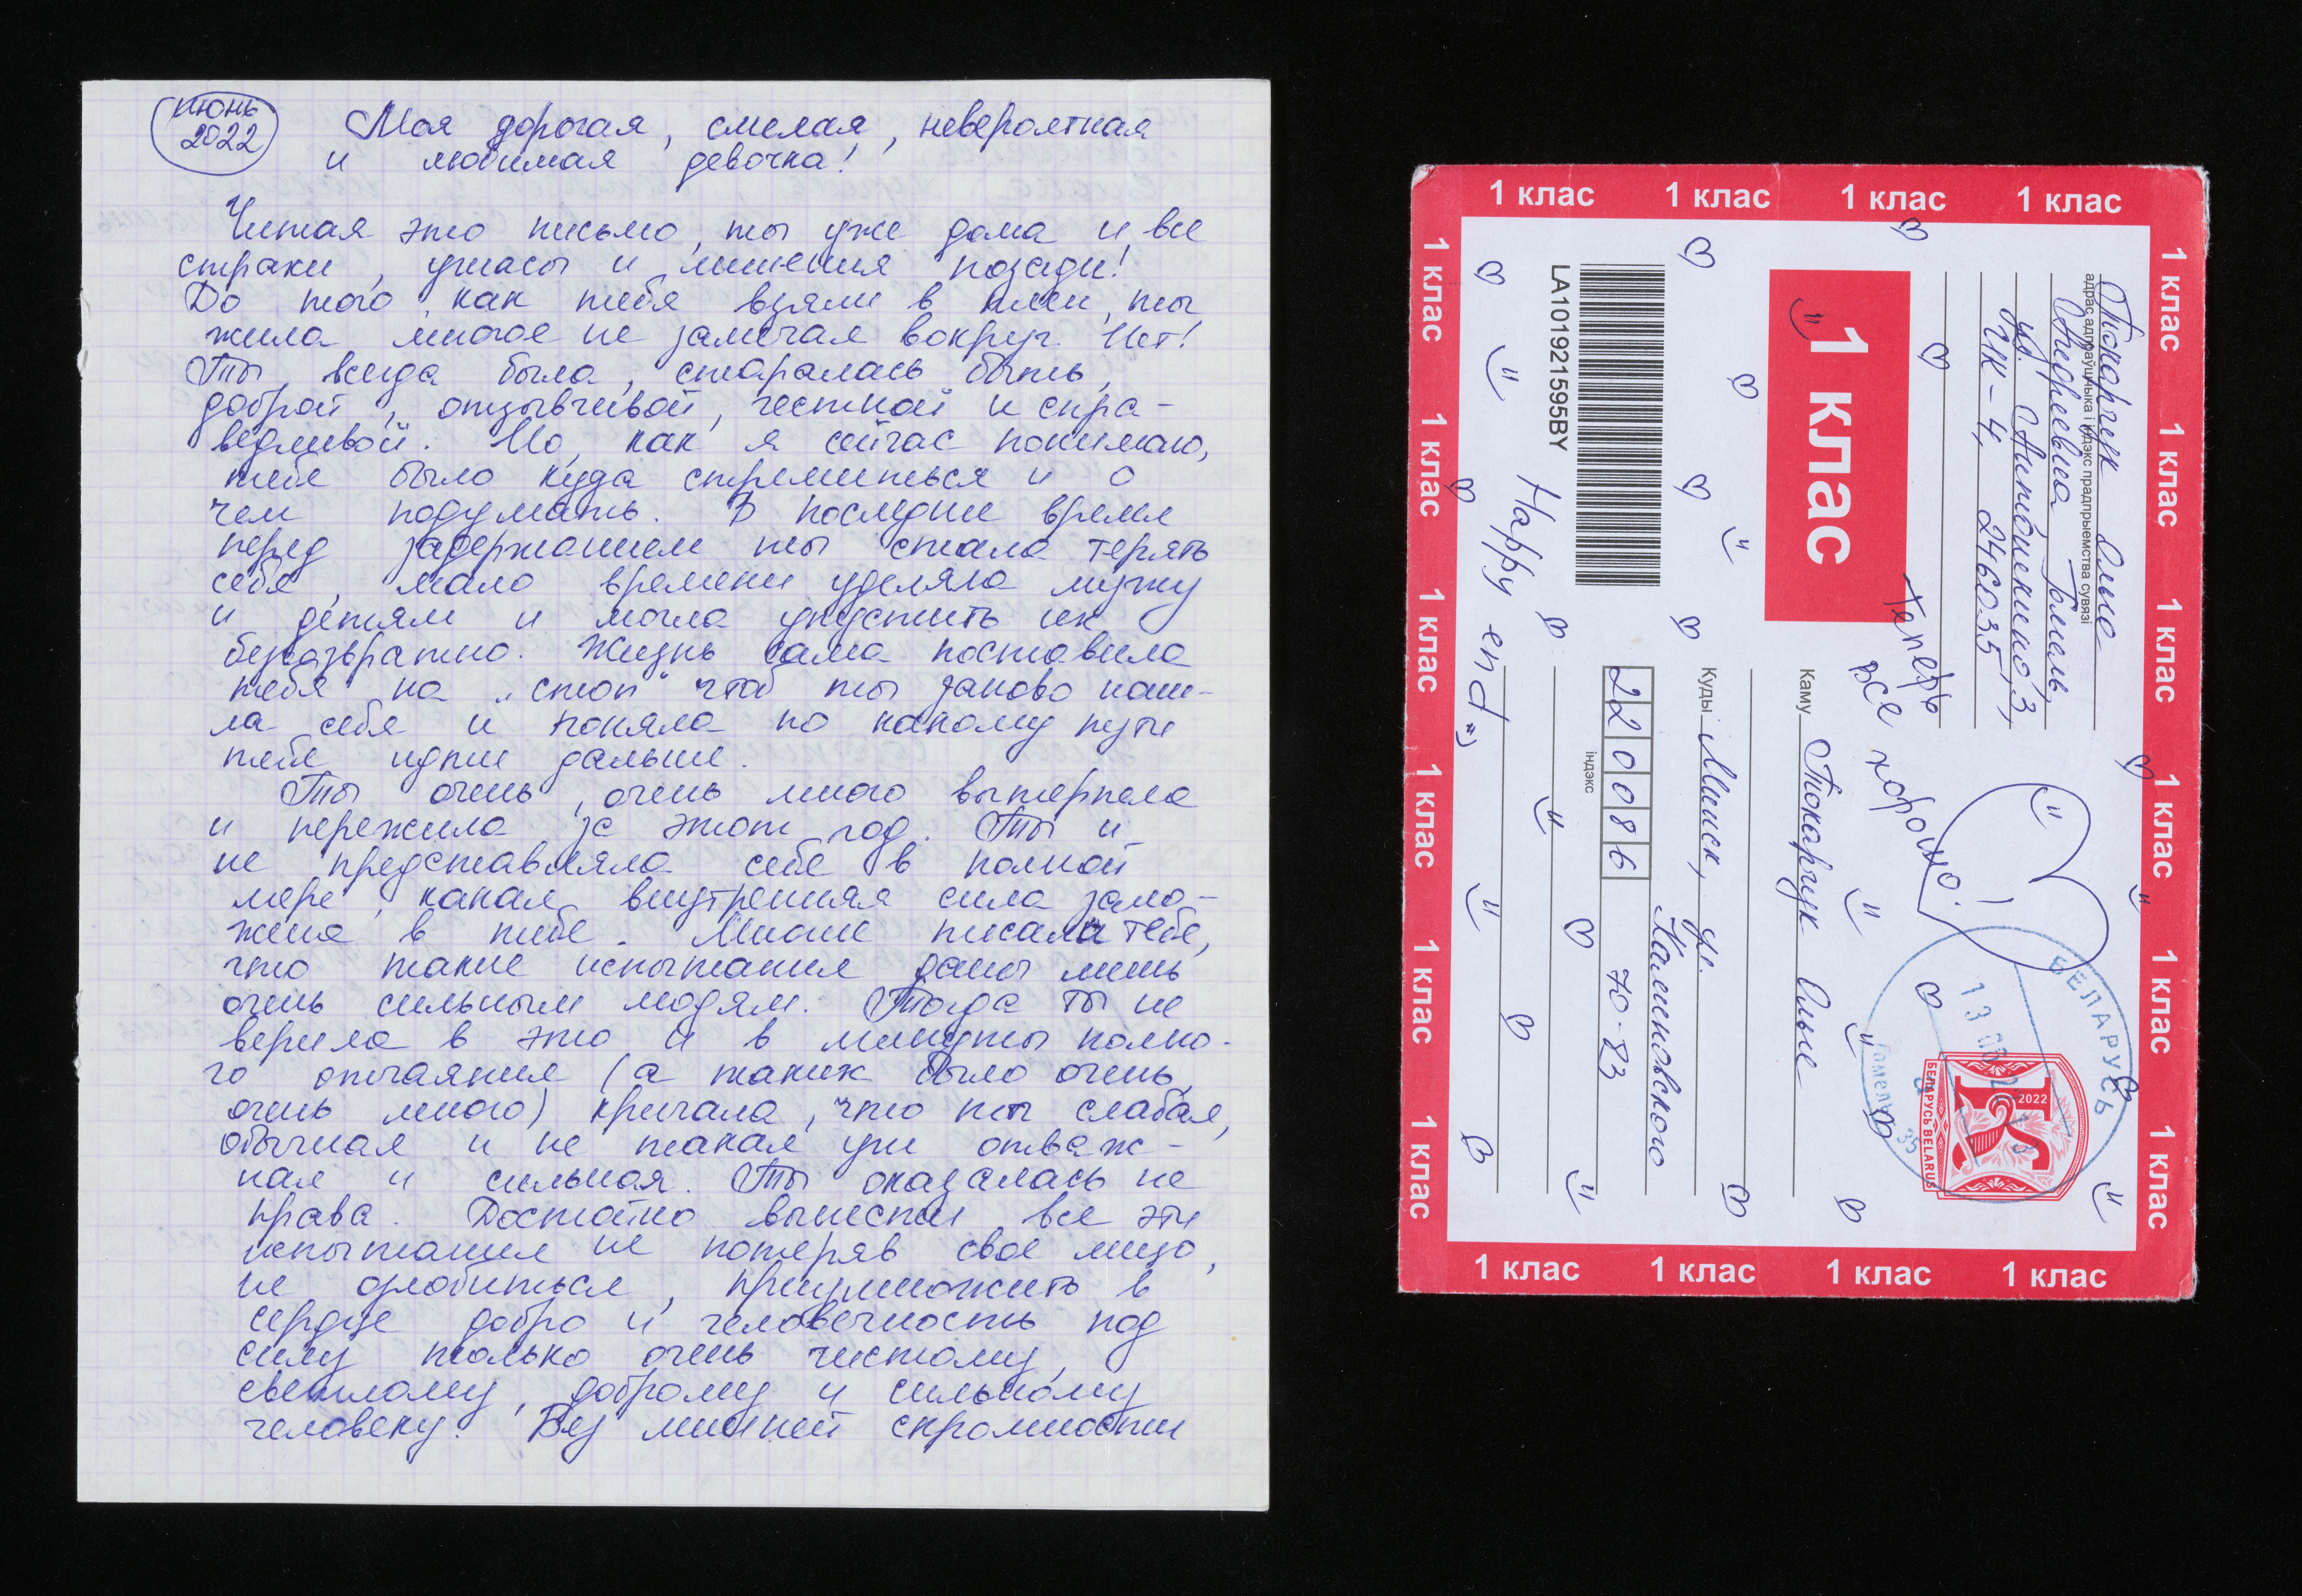 июнь
2022
Моя дорогая, смелая, невероятная
и любимая девочка!
Читая это письмо, ты уже дома и все
страхи, ужасы и лишения позади!
До того, как тебя взяли в плен, ты
жила многое не замечая вокруг. Нет!
Ты всегда была, старалась быть,
доброй, отзывчивой, честной и спра-
ведливой. Но, как я сейчас понимаю,
тебе было куда стремиться и о
чем подумать. В последнее время
перед задержанием ты стала терять
себя, мало времени уделяла мужу
и детям и могла упустить их
безвозвратно. Жизнь сама поставила
тебя на „стоп" чтоб ты заново наш-
ла себя и поняла по какому пути
тебе идти дальше.
Ты очень, очень много вытерпела
и пережила за этот год. Ты и
не представляла себе в полной
мере, какая внутренняя сила зало-
жена в тебе. Многие писали тебе,
что такие испытания даны лишь
очень сильным людям. Тогда ты не
верила в это и в минуты полно-
го отчаяния (а таких было очень,
очень много) кричала, что ты слабая,
обычная и не такая уж отваж-
ная и сильная. Ты оказалась не
права. Достойно вынести все эти
испытания не потеряв свое лицо,
не озлобиться, приумножить в
сердце добро и человечность под
силу только очень чистому,
светлому, доброму и сильному
человеку. Без лишней скромности
1 клас 1 клас 1 клас 1 клас
1 клас 1 клас 1 клас 1 клас 1 клас 1 клас
Токарчук Ольга
Андреевна Гомель,
адрас адпраўшчыка і індэкс прадпрыемства сувязі
ул. Антошкина, 3,
ИК-4, 246035
1 клас
Теперь
все хорошо!
LA101921595BY
Каму Токарчук Ольге
Куды Минск, ул.
Калиновского
220086 70-83
індэкс
Happy end =)
БЕЛАРУСЬ
Гомель 35
2022
БЕЛАРУСЬ BELARUS
1 клас 1 клас 1 клас 1 клас 1 клас 1 клас
1 клас 1 клас 1 клас 1 клас